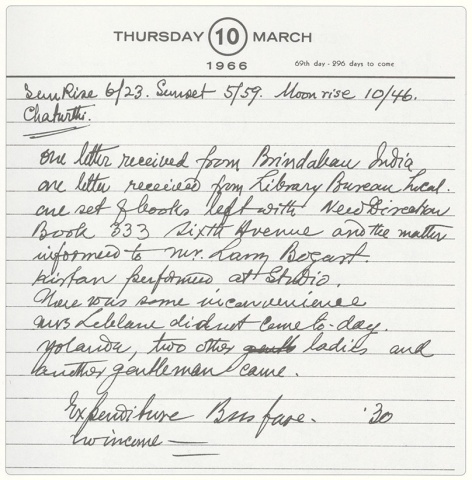 THURSDAY 10 MARCH
1966
69th day - 296 days to come
Sun Rise 6/23. Sunset 5/59. Moon rise 10/46.
Chaturthi.
One letter received from Brindaban India
one letter received from Library Bureau Local.
one set of books left with New Direction
Book 333 Sixth Avenue and the matter
informed to Mr. Larry Bogart.
Kirtan performed at Studio.
There was some inconvenience
Mrs Leblanc did not come to-day.
Yolanda, two other gents ladies and
another gentleman came.
Expenditure Bus fare. '30
no income —